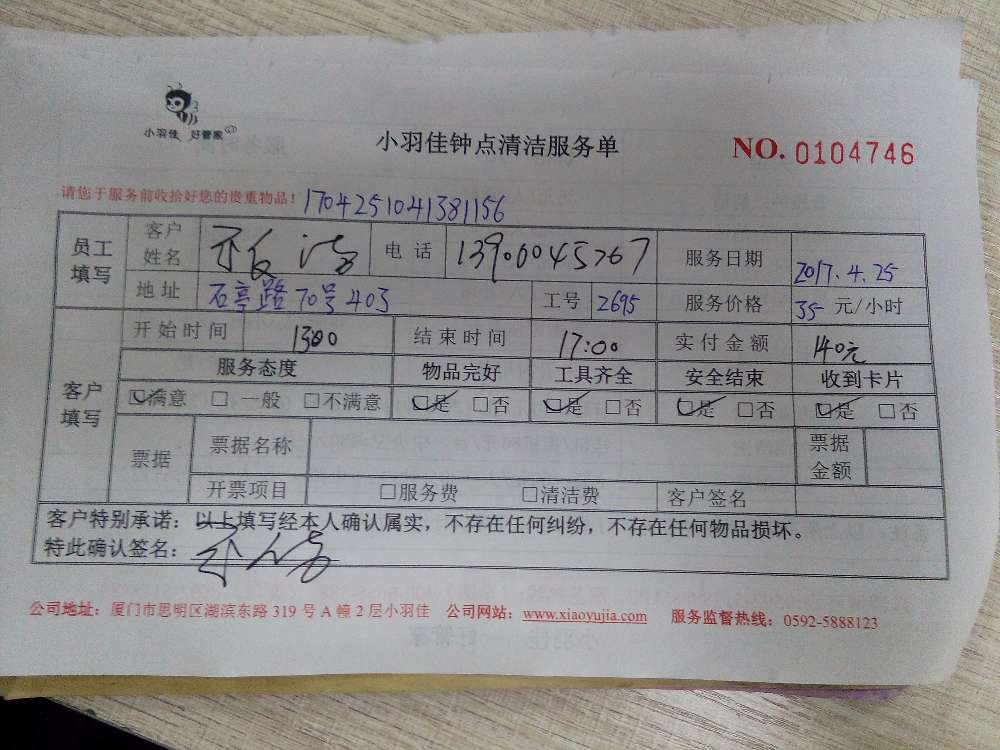 小羽佳 好管家
小羽佳钟点清洁服务单
NO. 0104746
请您于服务前收拾好您的贵重物品! 1704251041381156
员工填写 客户姓名 电话 服务日期 2017.4.25
地址 石亭路70号403 工号 2695 服务价格 35 元/小时
客户填写 开始时间 1300 结束时间 17:00 实付金额 140元
服务态度 物品完好 工具齐全 安全结束 收到卡片
☑满意 □一般 □不满意 ☑是 □否 ☑是 □否 ☑是 □否 ☑是 □否
票据 票据名称 票据金额
开票项目 □服务费 □清洁费 客户签名
客户特别承诺：以上填写经本人确认属实，不存在任何纠纷，不存在任何物品损坏。
特此确认签名：
公司地址：厦门市思明区湖滨东路 319 号 A 幢 2 层小羽佳 公司网站：www.xiaoyujia.com 服务监督热线：0592-5888123